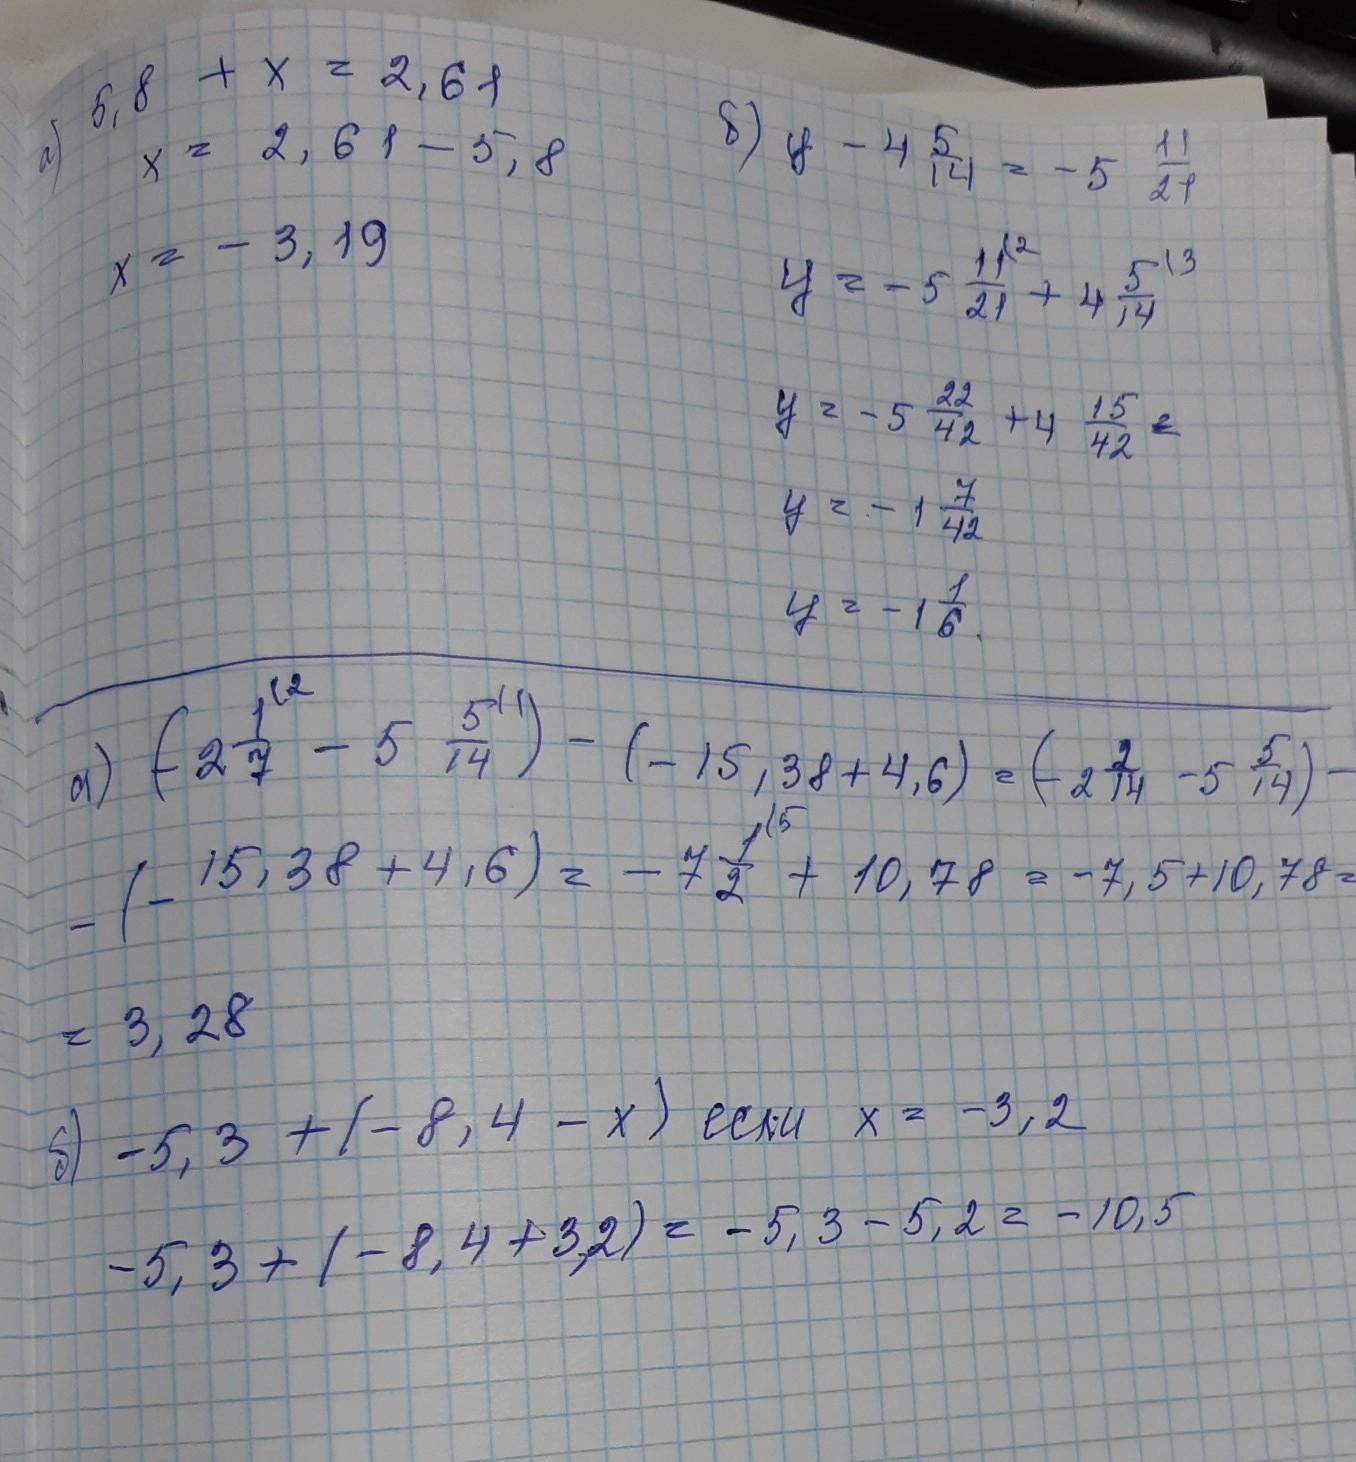 а) 5,8 + x = 2,61
x = 2,61 - 5,8
x = - 3,19
б) y - 4 5/14 = -5 11/21
y = -5 11/21 (2 + 4 5/14 (3
y = -5 22/42 + 4 15/42 =
y = -1 7/42
y = -1 1/6.
а) (-2 1/7 (2 - 5 5/14 (1) - (-15,38+4,6) = (-2 2/14 - 5 5/14) -
- (- 15,38+4,6) = -7 1/2 (5 + 10,78 = -7,5+10,78 =
= 3,28
б) -5,3 + (-8,4 - x) если x = -3,2
-5,3 + (-8,4+3,2) = -5,3 - 5,2 = -10,5